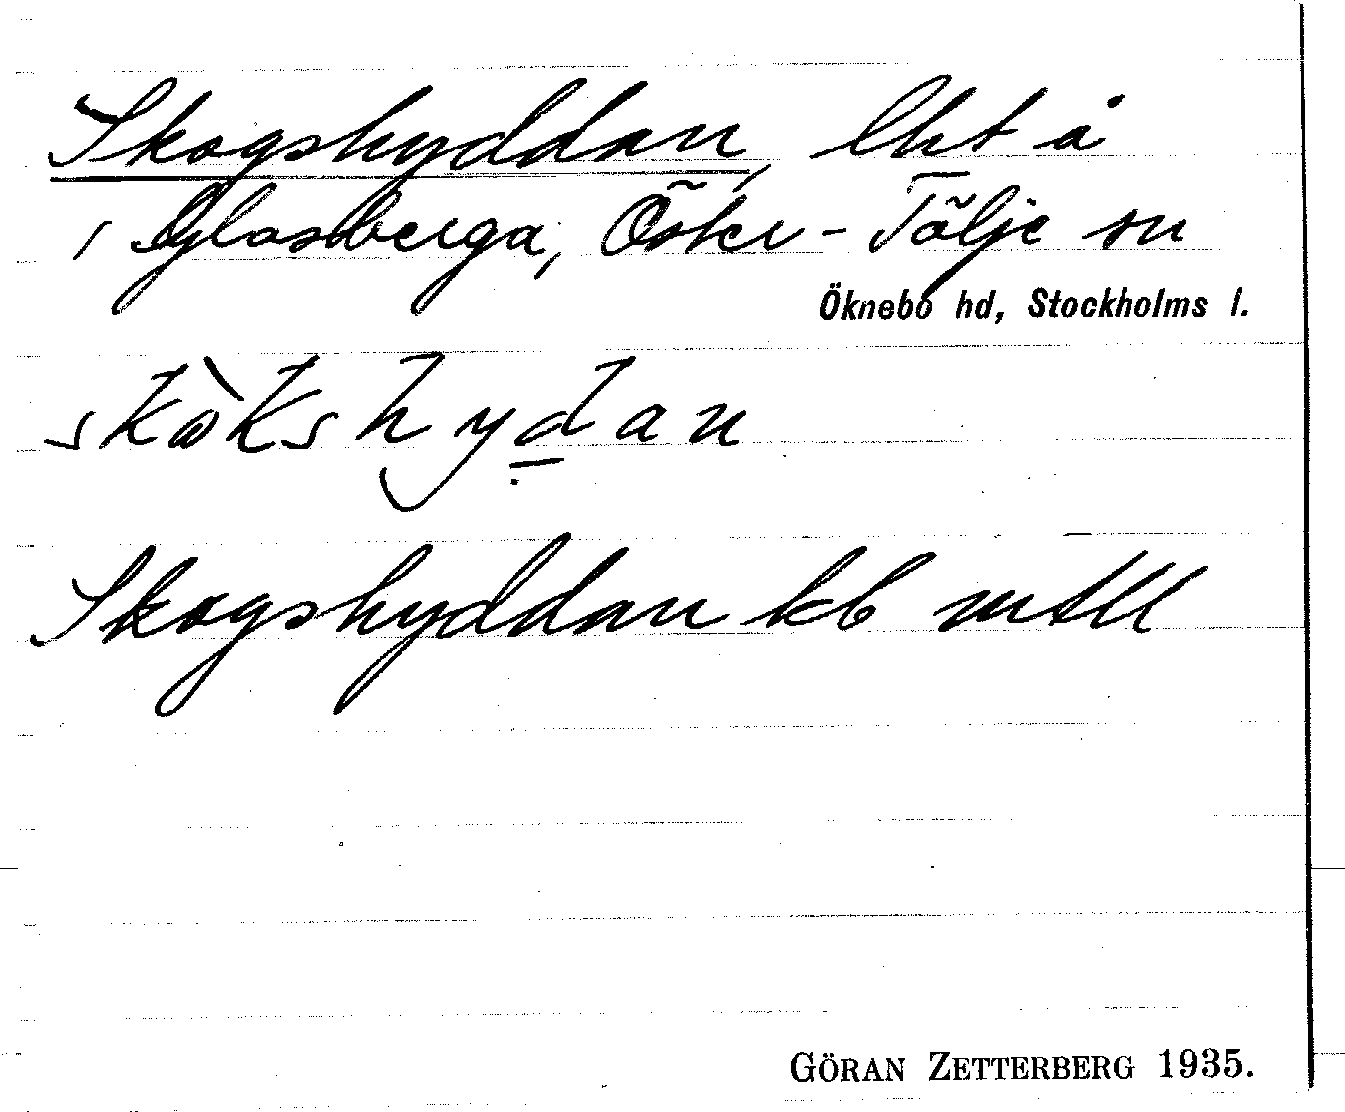 Skogshyddan, lht å
/ Glasberga, Öster-Tälje sn
Öknebo hd, Stockholms l.
skò̀kshydan
Skogshyddan kb mtll
GÖRAN ZETTERBERG 1935.